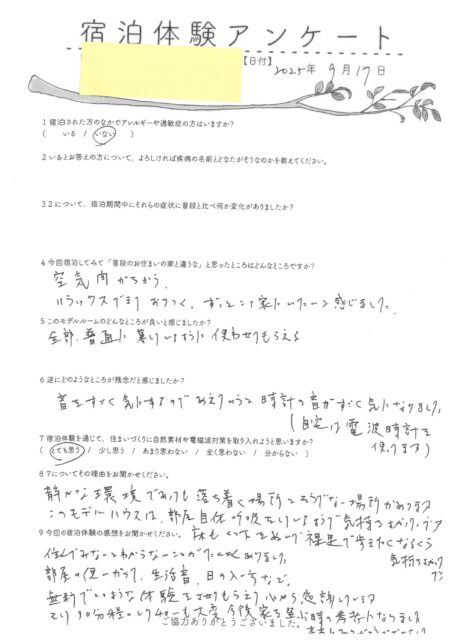 宿泊体験アンケート
【日付】 2025年9月17日
1 宿泊された方のなかでアレルギーや過敏症の方はいますか?
( いる / いない )
2 いるとお答えの方について、よろしければ疾病の名前とどなたがそうなのかを教えてください。
3 2について、宿泊期間中にそれらの症状に普段と比べ何か変化がありましたか?
4 今回宿泊してみて「普段のお住まいの家と違うな」と思ったところはどんなところですか?
空気間がちがう。
リラックスできて おちつく、ずっとここ家にいたいと感じました。
5 このモデルルームのどんなところが良いと感じましたか?
全部、普通に暮しているように使わせてもらえる
6 逆にどのようなところが残念だと感じましたか?
音をすごく気にするので あえていうと 時計の音がすごく気になりました
(自宅は電波時計を
使ってます)
7 宿泊体験を通じて、住まいづくりに自然素材や電磁波対策を取り入れようと思いますか?
( とても思う / 少し思う / あまり思わない / 全く思わない / 分からない )
8 7についてその理由をお聞かせください。
静かな環境であっても落ち着く場所とそうでない場所があります
このモデルハウスは、部屋自体呼吸をしているようで気持ちよかったです
9 今回の宿泊体験の感想をお聞かせください。
床もくつ下をぬいで裸足で歩きたくなるくら
気持ちよかった
です
住んでみないとわからないことがたくさんありました
部屋の使いがって、生活音、日の入り方など、
無料でこのような体験をさせてもらえ 心から感謝しています
今後家を選ぶ時の参考になりました
ご協力ありがとうございました。